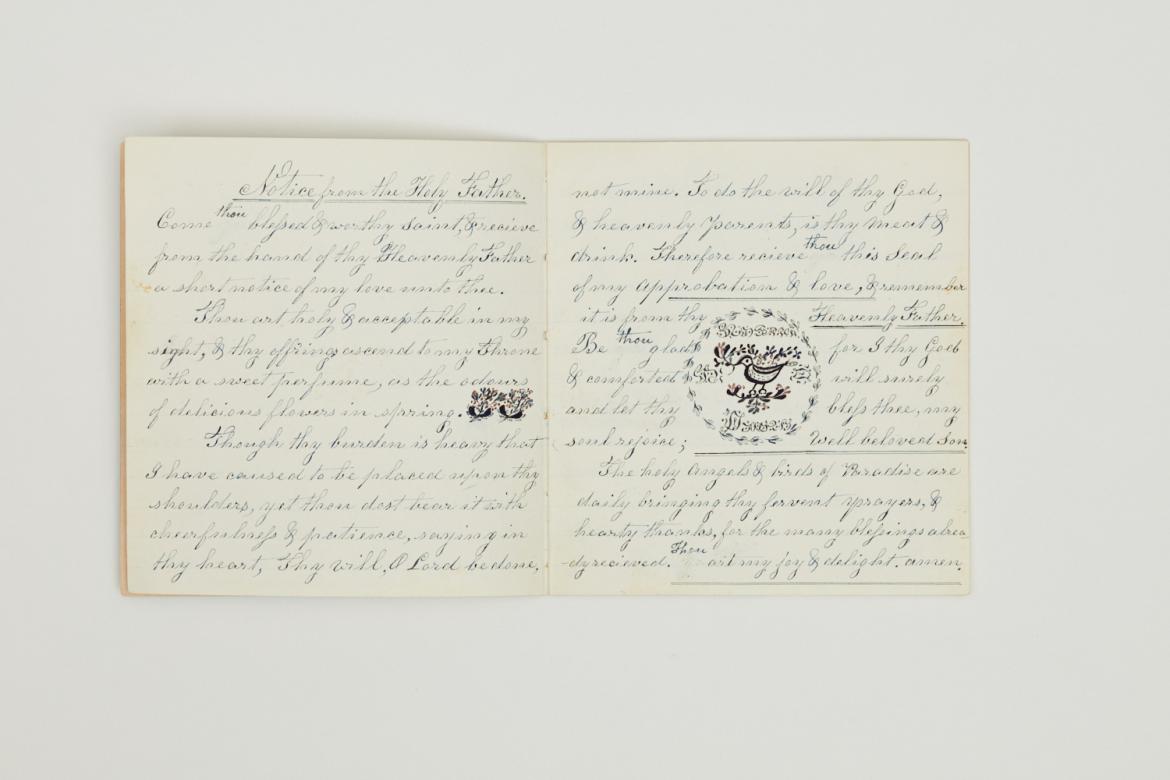 Notice from the Holy Father.
Come thou blessed & worthy Saint, & recieve
from the hand of thy Heavenly Father
a short notice of my love unto thee.
Thou art holy & acceptable in my
sight, & thy offrings ascend to my Throne
with a sweet perfume, as the odours
of delicious flowers in spring.
Though thy burden is heavy that
I have caused to be placed upon thy
shoulders, yet thou dost bear it with
cheerfulness & patience, saying in
thy heart, Thy will, O Lord be done,
not mine. To do the will of thy God,
& heavenly Parents, is thy meat &
drink. Therefore recieve thou this Seal
of my approbation & love, & remember
it is from thy Heavenly Father.
Be thou glad for I thy God
& comforted will surely
and let thy bless thee, my
soul rejoice; Well beloved Son.
The holy Angels & birds of Paradise are
daily bringing thy fervent prayers, &
hearty thanks, for the many blessings alrea
-dy recieved. Thou art my joy & delight. amen.